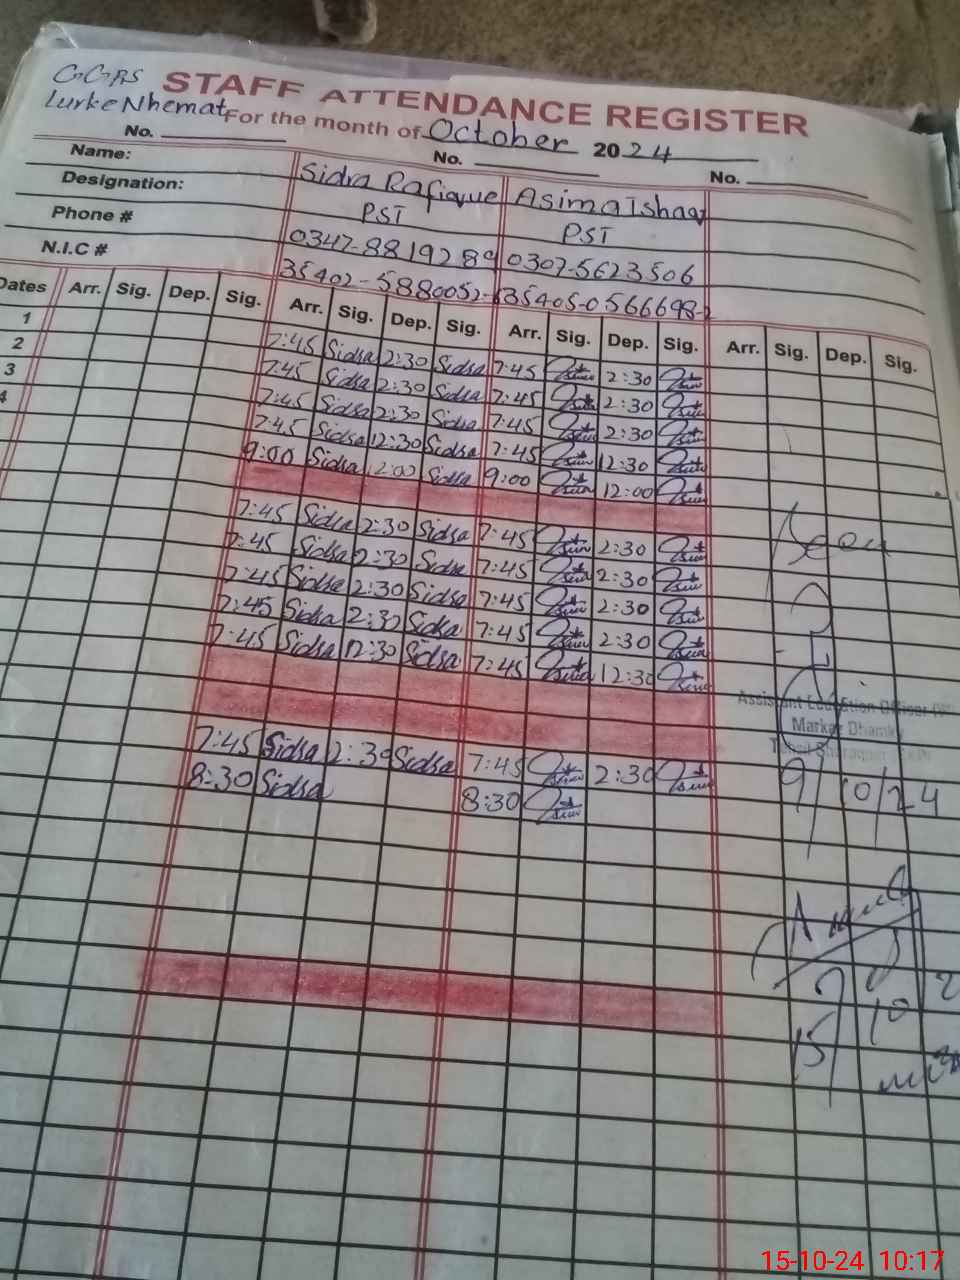 STAFF ATTENDANCE REGISTER
Lurke Nhemat For the month of October 2024
No. No. No.
Name: Sidra Rafique Asima Ishaq
Designation: PST PST
Phone # 0347-8819289 0307-5623506
N.I.C # 35402-5880052- 35405-0566698-2
Dates Arr. Sig. Dep. Sig. Arr. Sig. Dep. Sig. Arr. Sig. Dep. Sig. Arr. Sig. Dep. Sig.
1 7:45 Sidra 2:30 Sidra 7:45 2:30
2 7:45 Sidra 2:30 Sidra 7:45 2:30
3 7:45 Sidra 2:30 Sidra 7:45 2:30
4 7:45 Sidra 12:30 Sidra 7:45 12:30
9:00 Sidra 12:00 Sidra 9:00 12:00
7:45 Sidra 2:30 Sidra 7:45 2:30
7:45 Sidra 2:30 Sidra 7:45 2:30
7:45 Sidra 2:30 Sidra 7:45 2:30
7:45 Sidra 2:30 Sidra 7:45 2:30
7:45 Sidra 12:30 Sidra 7:45 12:30
7:45 Sidra 2:30 Sidra 7:45 2:30
8:30 Sidra 8:30
Seen
Assistant Education Officer
Markaz Dhamke
9/10/24
15/10
15-10-24 10:17